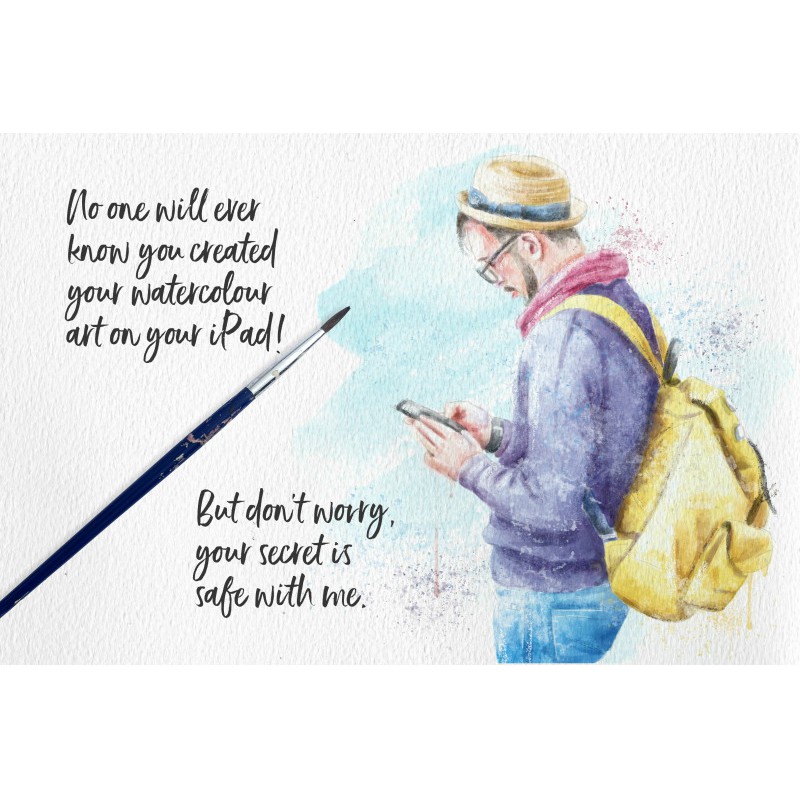 No one will ever
know you created
your watercolour
art on your iPad!
But don't worry,
your secret is
safe with me.